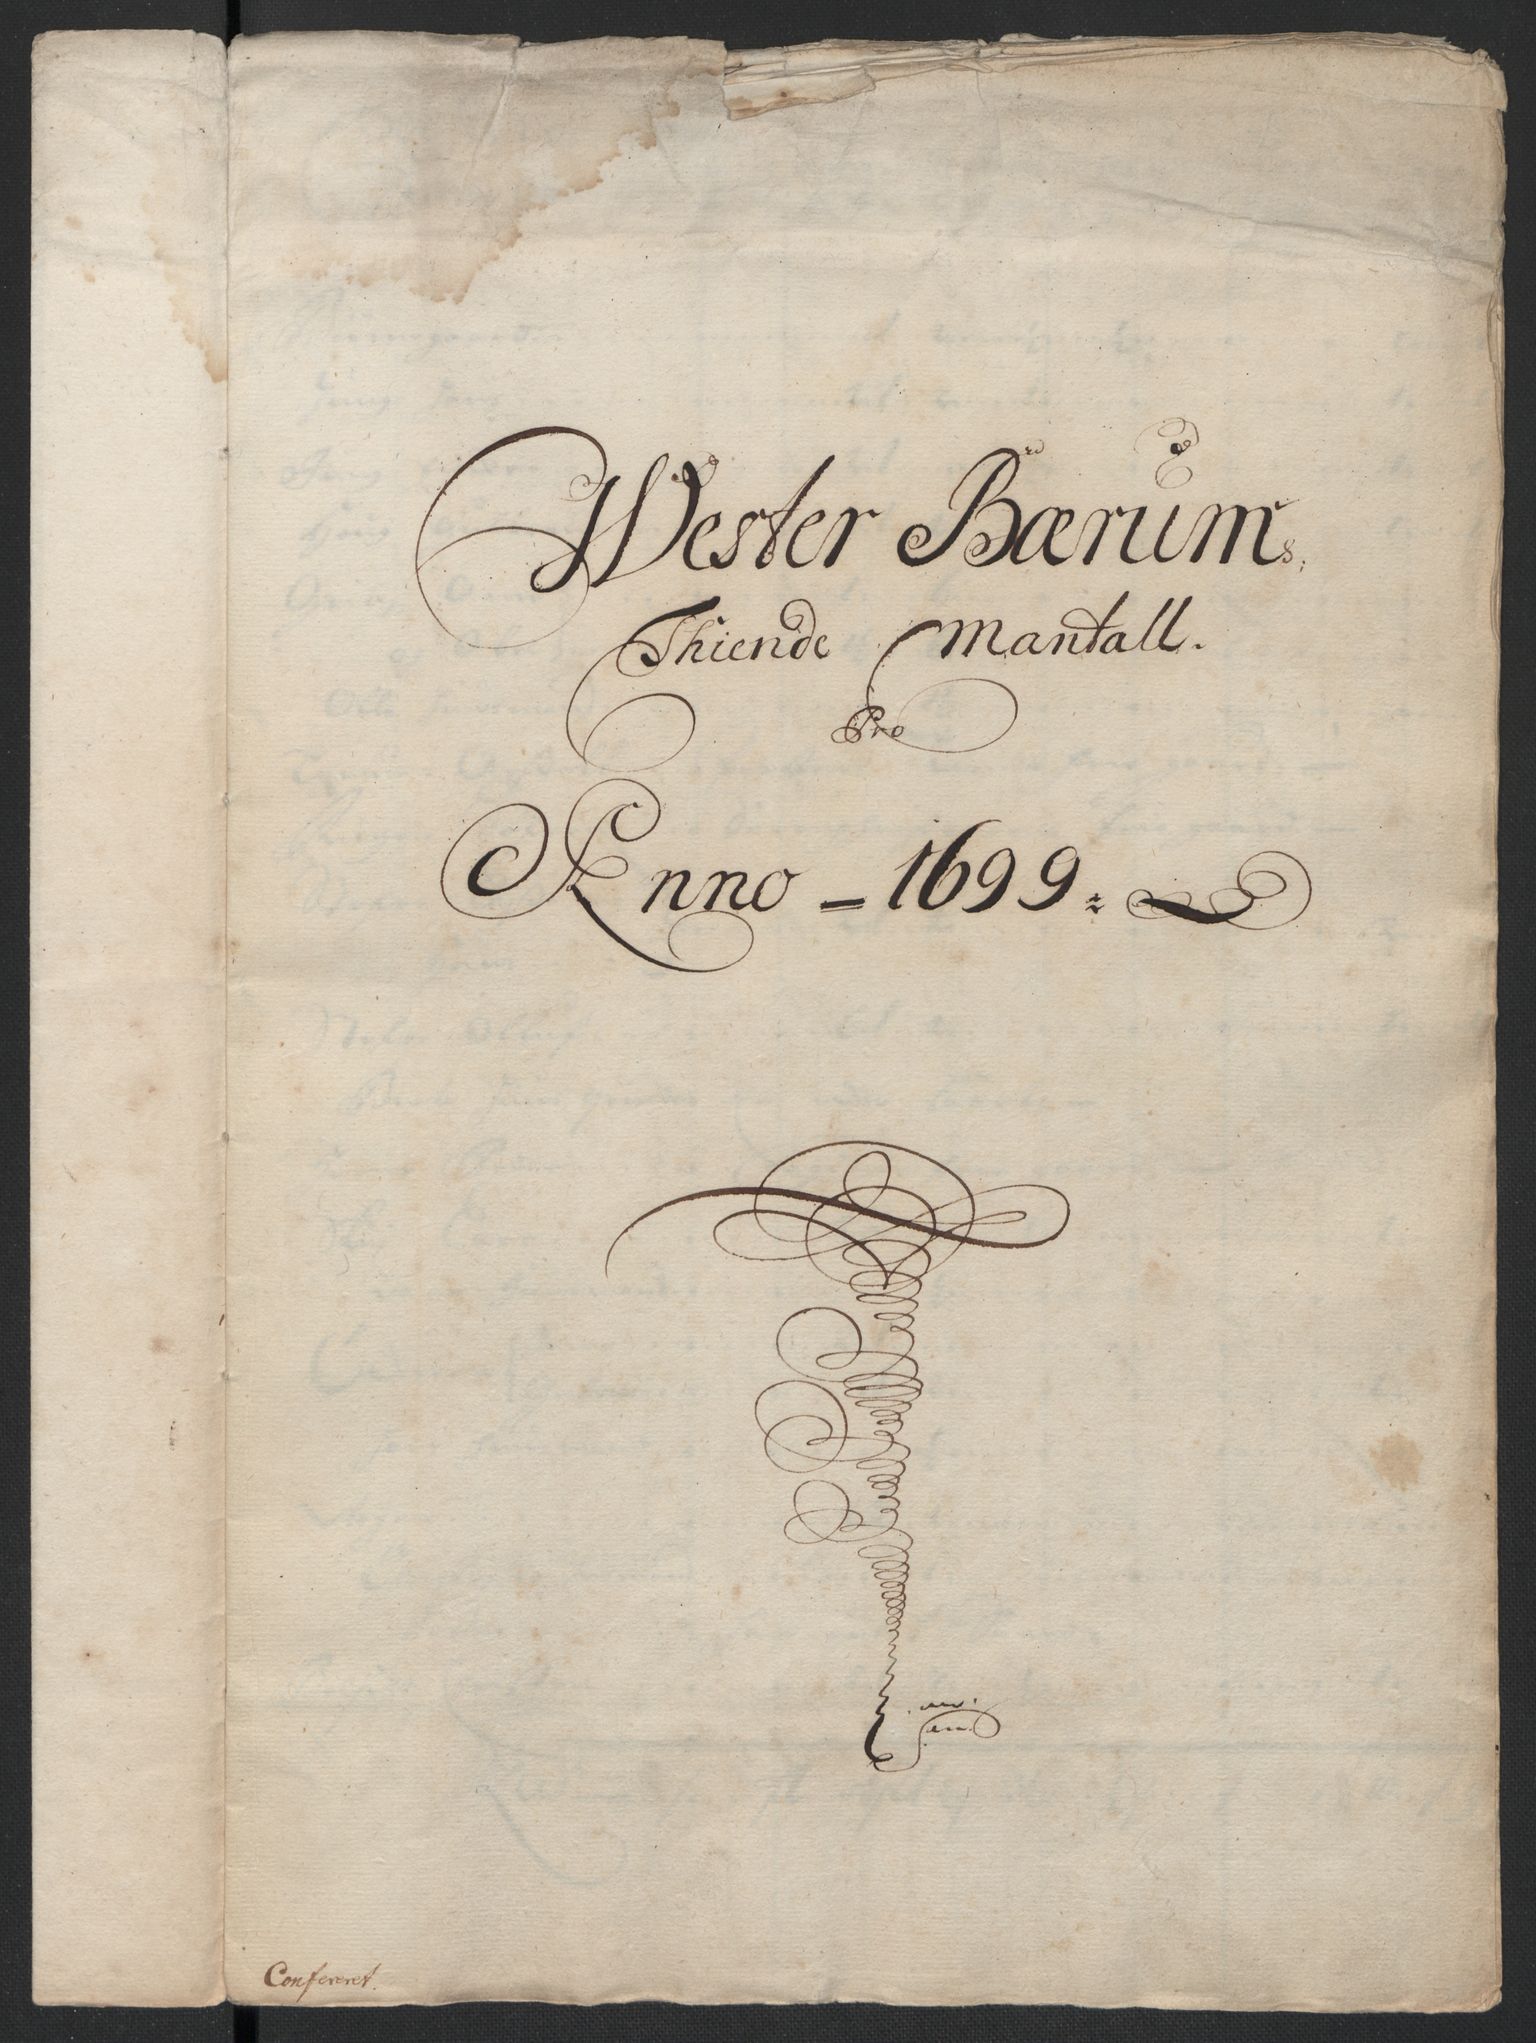 Wester Bærums
Thiende Mantall.
Pro
Anno = 1699
Confereret.